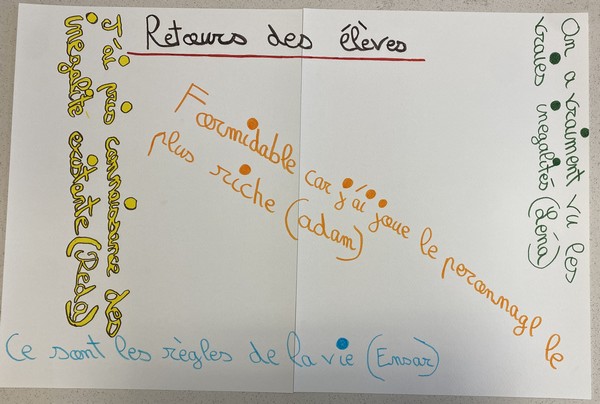 Retours des élèves
J'ai pris connaissance des
inégalité existante (Reda)
Formidable car j'ai joué le personnagl le
plus riche (adam)
On a vraiment vu les
vraies inégalités (Léna)
Ce sont les règles de la vie (Ensar)